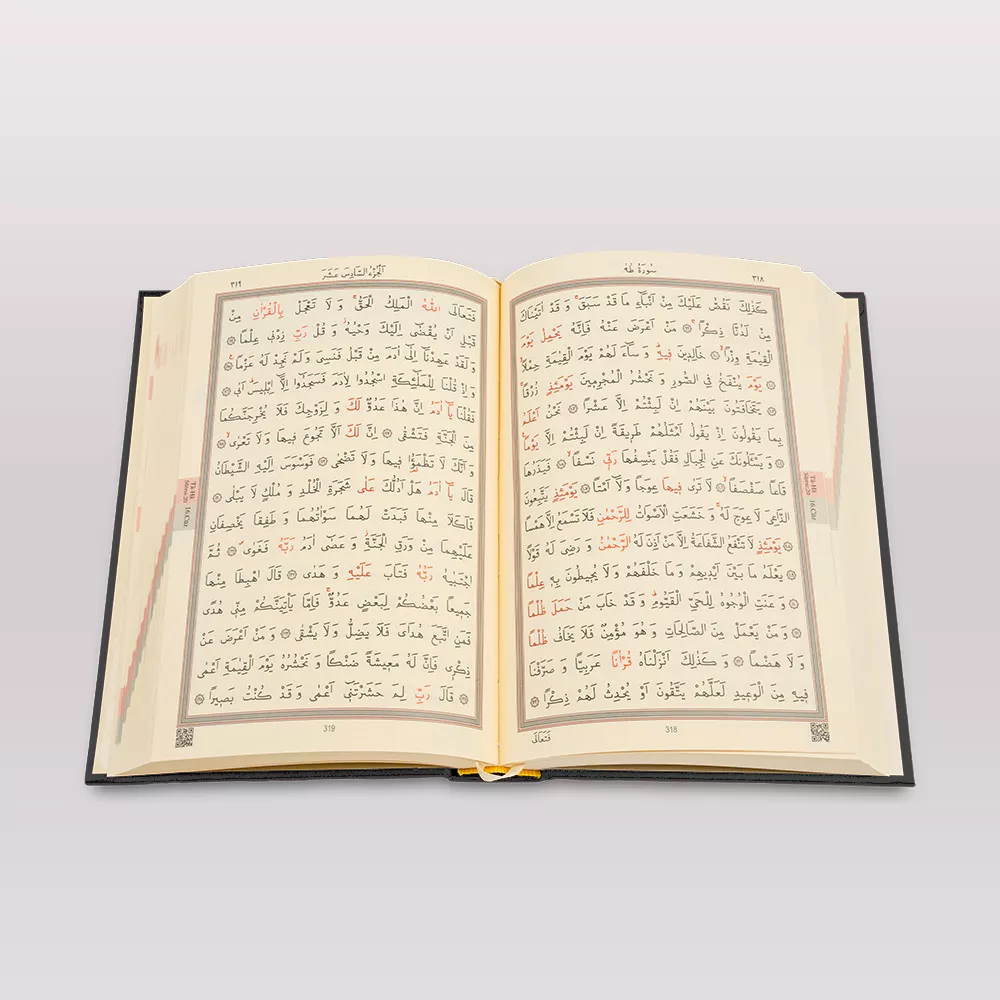 سورة طٰهٰ
٣١٨
كَذٰلِكَ نَقُصُّ عَلَيْكَ مِنْ اَنْبَٓاءِ مَا قَدْ سَبَقَۚ وَ قَدْ اٰتَيْنَاكَ
مِنْ لَدُنَّا ذِكْرًاۚ مَنْ اَعْرَضَ عَنْهُ فَاِنَّهُ يَحْمِلُ يَوْمَ
الْقِيٰمَةِ وِزْرًاۙ خَالِدٖينَ فٖيهِۜ وَ سَٓاءَ لَهُمْ يَوْمَ الْقِيٰمَةِ حِمْلًاۙ
يَوْمَ يُنْفَخُ فِي الصُّورِ وَ نَحْشُرُ الْمُجْرِمٖينَ يَوْمَئِذٍ زُرْقًاۚ
يَتَخَافَتُونَ بَيْنَهُمْ اِنْ لَبِثْتُمْ اِلَّا عَشْرًا نَحْنُ اَعْلَمُ
بِمَا يَقُولُونَ اِذْ يَقُولُ اَمْثَلُهُمْ طَرٖيقَةً اِنْ لَبِثْتُمْ اِلَّا يَوْمًا۟
وَ يَسْـَٔلُونَكَ عَنِ الْجِبَالِ فَقُلْ يَنْسِفُهَا رَبّٖي نَسْفًاۙ فَيَذَرُهَا
قَاعًا صَفْصَفًاۙ لَا تَرٰى فٖيهَا عِوَجًا وَلَٓا اَمْتًاۜ يَوْمَئِذٍ يَتَّبِعُونَ
الدَّاعِيَ لَا عِوَجَ لَهُۚ وَ خَشَعَتِ الْاَصْوَاتُ لِلرَّحْمٰنِ فَلَا تَسْمَعُ اِلَّا هَمْسًا
يَوْمَئِذٍ لَا تَنْفَعُ الشَّفَاعَةُ اِلَّا مَنْ اَذِنَ لَهُ الرَّحْمٰنُ وَ رَضِيَ لَهُ قَوْلًا
يَعْلَمُ مَا بَيْنَ اَيْدٖيهِمْ وَ مَا خَلْفَهُمْ وَ لَا يُحٖيطُونَ بِهٖ عِلْمًا
وَ عَنَتِ الْوُجُوهُ لِلْحَيِّ الْقَيُّومِۜ وَ قَدْ خَابَ مَنْ حَمَلَ ظُلْمًا
وَ مَنْ يَعْمَلْ مِنَ الصَّالِحَاتِ وَ هُوَ مُؤْمِنٌ فَلَا يَخَافُ ظُلْمًا
وَ لَا هَضْمًا وَ كَذٰلِكَ اَنْزَلْنَاهُ قُرْاٰنًا عَرَبِيًّا وَ صَرَّفْنَا
فٖيهِ مِنَ الْوَعٖيدِ لَعَلَّهُمْ يَتَّقُونَ اَوْ يُحْدِثُ لَهُمْ ذِكْرًا
فَتَعَالَى
318
Tâ-Hâ
Sûresi:20
16.Cüz
الْجُزْءُ السَّادِسَ عَشَرَ
٣١٩
فَتَعَالَى اللّٰهُ الْمَلِكُ الْحَقُّۚ وَ لَا تَعْجَلْ بِالْقُرْاٰنِ مِنْ
قَبْلِ اَنْ يُقْضٰٓى اِلَيْكَ وَحْيُهُۘ وَ قُلْ رَبِّ زِدْنٖي عِلْمًا
وَ لَقَدْ عَهِدْنَٓا اِلٰٓى اٰدَمَ مِنْ قَبْلُ فَنَسِيَ وَ لَمْ نَجِدْ لَهُ عَزْمًا۟
وَ اِذْ قُلْنَا لِلْمَلٰٓئِكَةِ اسْجُدُوا لِاٰدَمَ فَسَجَدُٓوا اِلَّٓا اِبْلٖيسَۜ اَبٰى
فَقُلْنَا يَٓا اٰدَمُ اِنَّ هٰذَا عَدُوٌّ لَكَ وَ لِزَوْجِكَ فَلَا يُخْرِجَنَّكُمَا
مِنَ الْجَنَّةِ فَتَشْقٰى اِنَّ لَكَ اَلَّا تَجُوعَ فٖيهَا وَ لَا تَعْرٰىۙ
وَ اَنَّكَ لَا تَظْمَؤُ۬ا فٖيهَا وَ لَا تَضْحٰى فَوَسْوَسَ اِلَيْهِ الشَّيْطَانُ
قَالَ يَٓا اٰدَمُ هَلْ اَدُلُّكَ عَلٰى شَجَرَةِ الْخُلْدِ وَ مُلْكٍ لَا يَبْلٰى
فَاَكَلَا مِنْهَا فَبَدَتْ لَهُمَا سَوْاٰتُهُمَا وَ طَفِقَا يَخْصِفَانِ
عَلَيْهِمَا مِنْ وَرَقِ الْجَنَّةِۘ وَ عَصٰٓى اٰدَمُ رَبَّهُ فَغَوٰىۖ ثُمَّ
اجْتَبٰيهُ رَبُّهُ فَتَابَ عَلَيْهِ وَ هَدٰى قَالَ اهْبِطَا مِنْهَا
جَمٖيعًا بَعْضُكُمْ لِبَعْضٍ عَدُوٌّۚ فَاِمَّا يَاْتِيَنَّكُمْ مِنّٖي هُدًى
فَمَنِ اتَّبَعَ هُدَايَ فَلَا يَضِلُّ وَ لَا يَشْقٰى وَ مَنْ اَعْرَضَ عَنْ
ذِكْرٖي فَاِنَّ لَهُ مَعٖيشَةً ضَنْكًا وَ نَحْشُرُهُ يَوْمَ الْقِيٰمَةِ اَعْمٰى
قَالَ رَبِّ لِمَ حَشَرْتَنٖٓي اَعْمٰى وَ قَدْ كُنْتُ بَصٖيرًا
319
Tâ-Hâ
Sûresi:20
16.Cüz